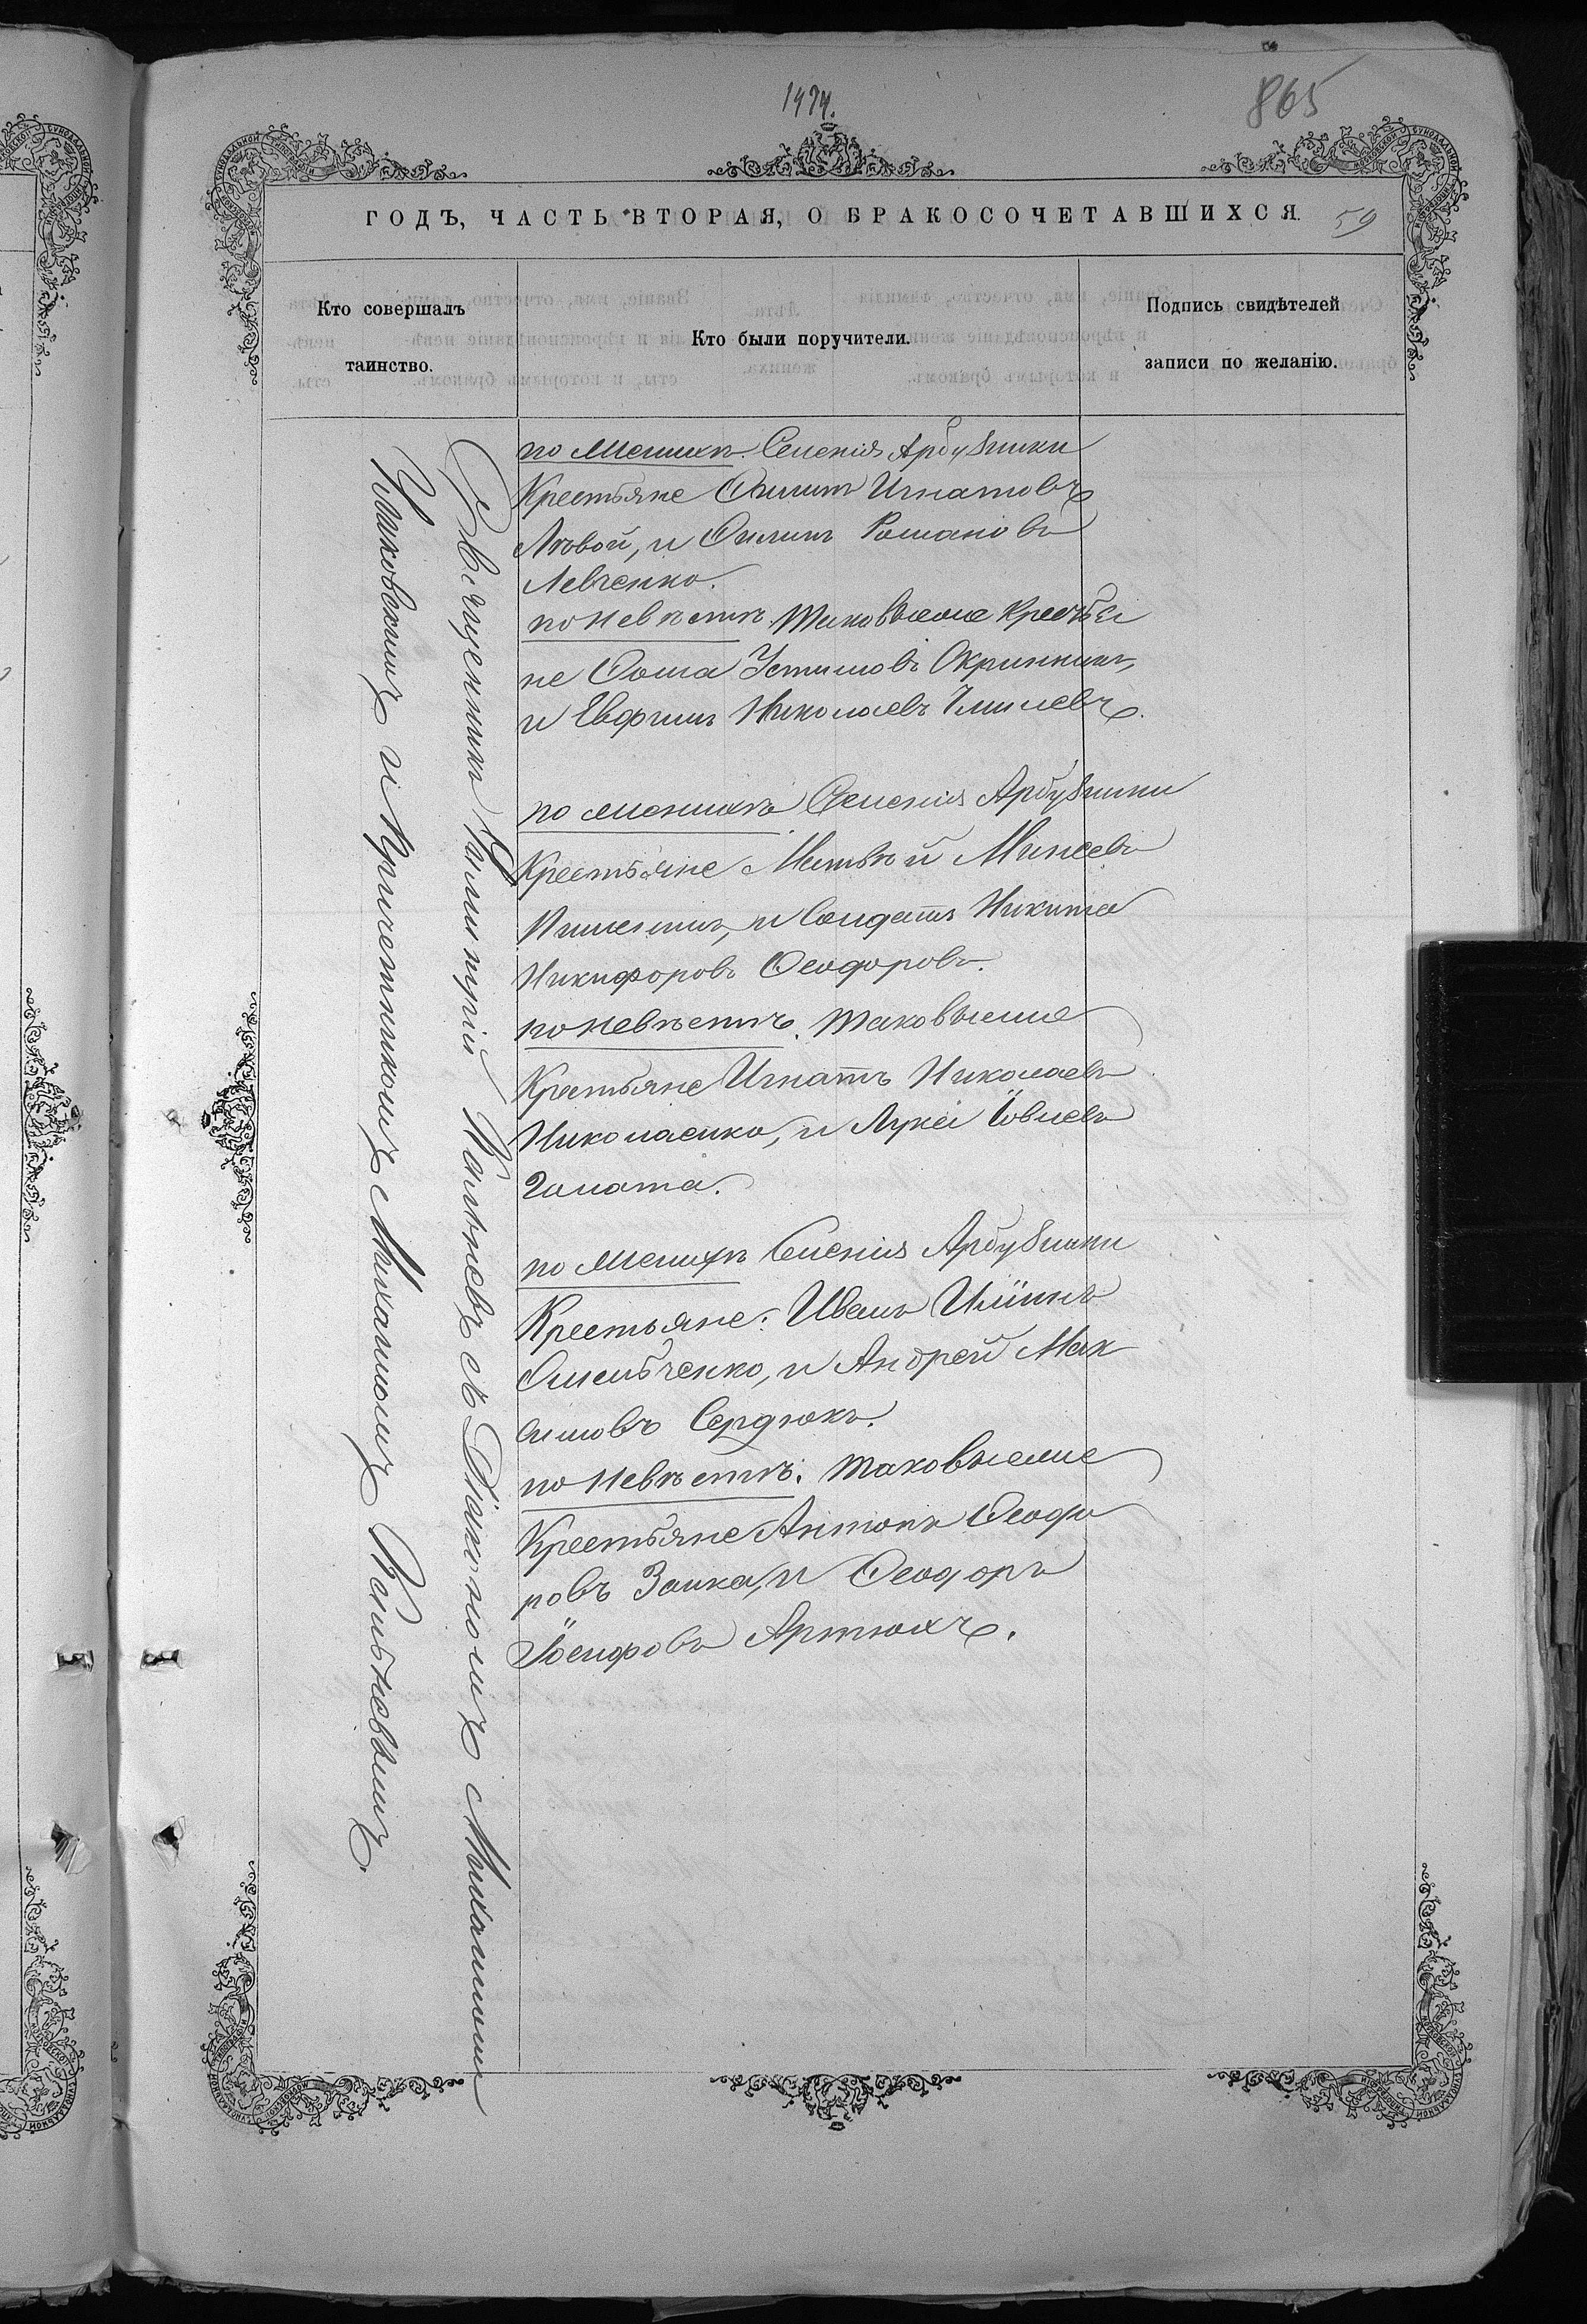 1874.
865
ГОДЪ, ЧАСТЬ ВТОРАЯ, О БРАКОСОЧЕТАВШИХСЯ.
59
Кто совершалъ
таинство.
Кто были поручители.
Подпись свидѣтелей
записи по желанію.
Священникъ Калѣневъ съ Діакономъ Михаиломъ
и Причетникомъ Михаиломъ
по женихѣ Селенія Арбузинки
Крестьяне Филипъ Игнатовъ
Лѣвой, и Филипъ Романовъ
Левченко.
по невѣстѣ таковыеже Крестья
не Фома Устимовъ Скринникъ,
и Евфимъ Николаевъ
по женихѣ Селенія Арбузинки
Крестьяне Матвѣй Минеевъ
и Солдатъ Никита
Никифоровъ Феодоровъ.
по невѣстѣ. таковыеже
Крестьяне Игнатъ Николаевъ
Николаенко, и Лука Іовлевъ
Гамота.
по женихѣ Селенія Арбузинки
Крестьяне: Иванъ Ильинъ
Омельченко, и Андрей Мак
симовъ Сердюкъ.
по невѣстѣ: таковыеже
Крестьяне Антонъ Феодо
ровъ Заика, и Феодоръ
Іосифовъ Артюхъ.